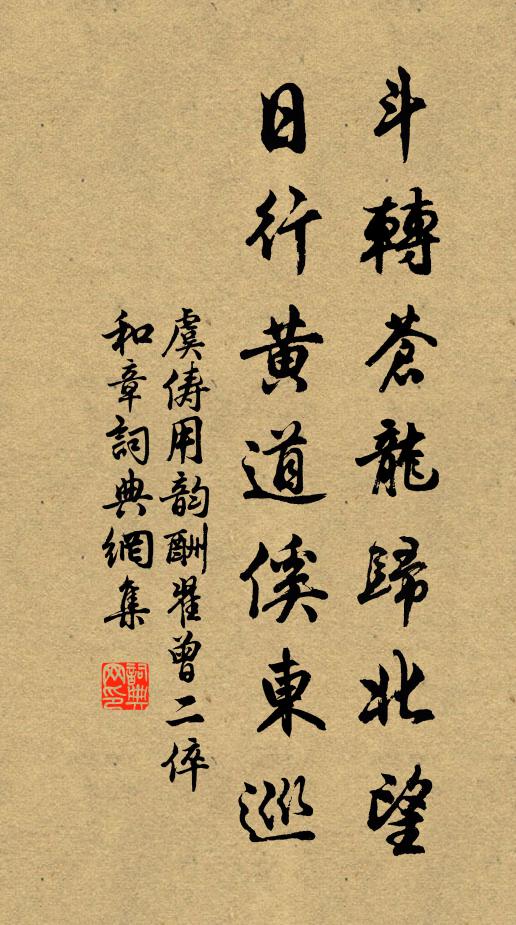 斗轉蒼龍歸北望
日行黃道傒東巡
虞儔用韵酬翟曾二倅
和章詞典網集
詞典网印